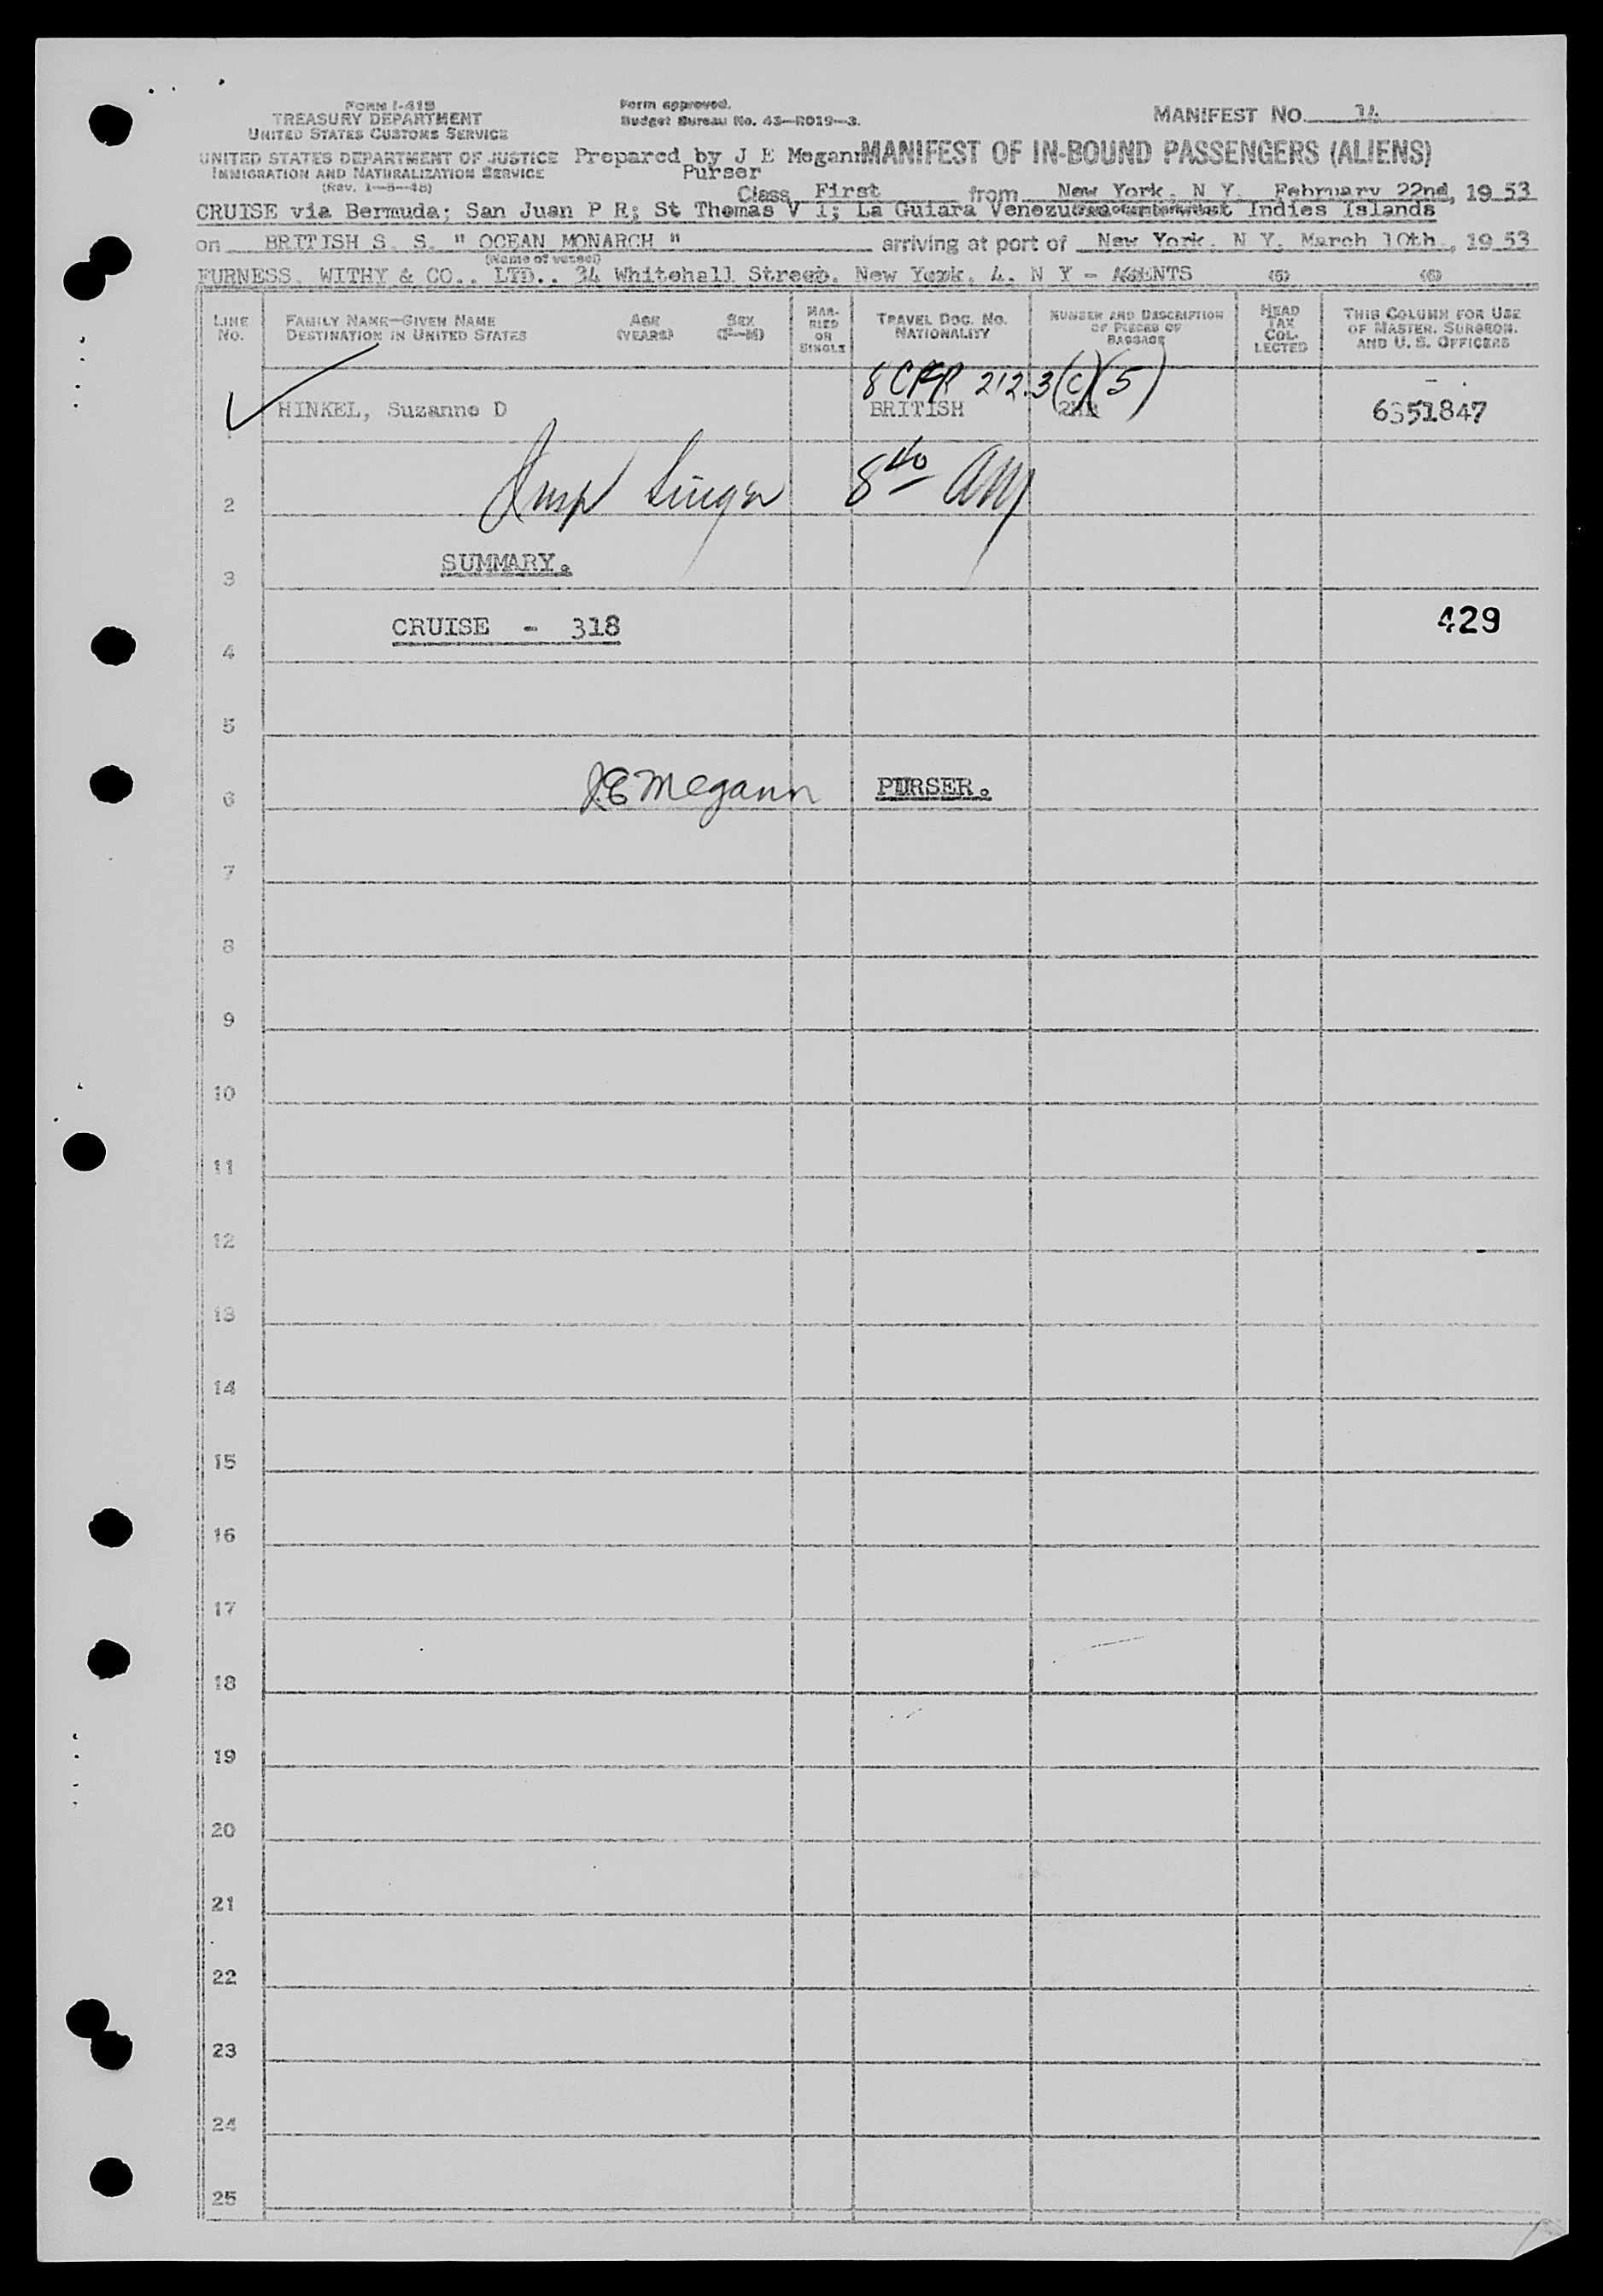 FORM I-415
TREASURY DEPARTMENT
UNITED STATES CUSTOMS SERVICE
UNITED STATES DEPARTMENT OF JUSTICE
IMMIGRATION AND NATURALIZATION SERVICE
(Rev. 1-5-48)
Form approved.
Budget Bureau No. 43-R019-3.
MANIFEST NO. 14
Prepared by J E Megann MANIFEST OF IN-BOUND PASSENGERS (ALIENS)
Purser
Class First from New York, N Y, February 22nd, 19 53
CRUISE via Bermuda; San Juan P R; St Thomas V I; La Guiara Indies Islands
on BRITISH S. S. " OCEAN MONARCH " arriving at port of New York, N Y, March 10th, 19 53
(Name of vessel)
FURNESS, WITHY & CO., LTD., 34 Whitehall Street, New York, 4, N Y - AGENTS (5) (6)
LINE NO.
FAMILY NAME—GIVEN NAME
DESTINATION IN UNITED STATES
AGE (YEARS)
SEX (F-M)
MARRIED OR SINGLE
TRAVEL DOC. NO.
NATIONALITY
NUMBER AND DESCRIPTION OF PIECES OF BAGGAGE
HEAD TAX COLLECTED
THIS COLUMN FOR USE OF MASTER, SURGEON, AND U. S. OFFICERS
8 CFR 212.3(c)(5)
HINKEL, Suzanne D BRITISH 6351847
Insp Singer 8 40 AM
2
SUMMARY.
3
CRUISE - 318 429
4
5
J.E Megann PURSER.
6
7
8
9
10
11
12
13
14
15
16
17
18
19
20
21
22
23
24
25